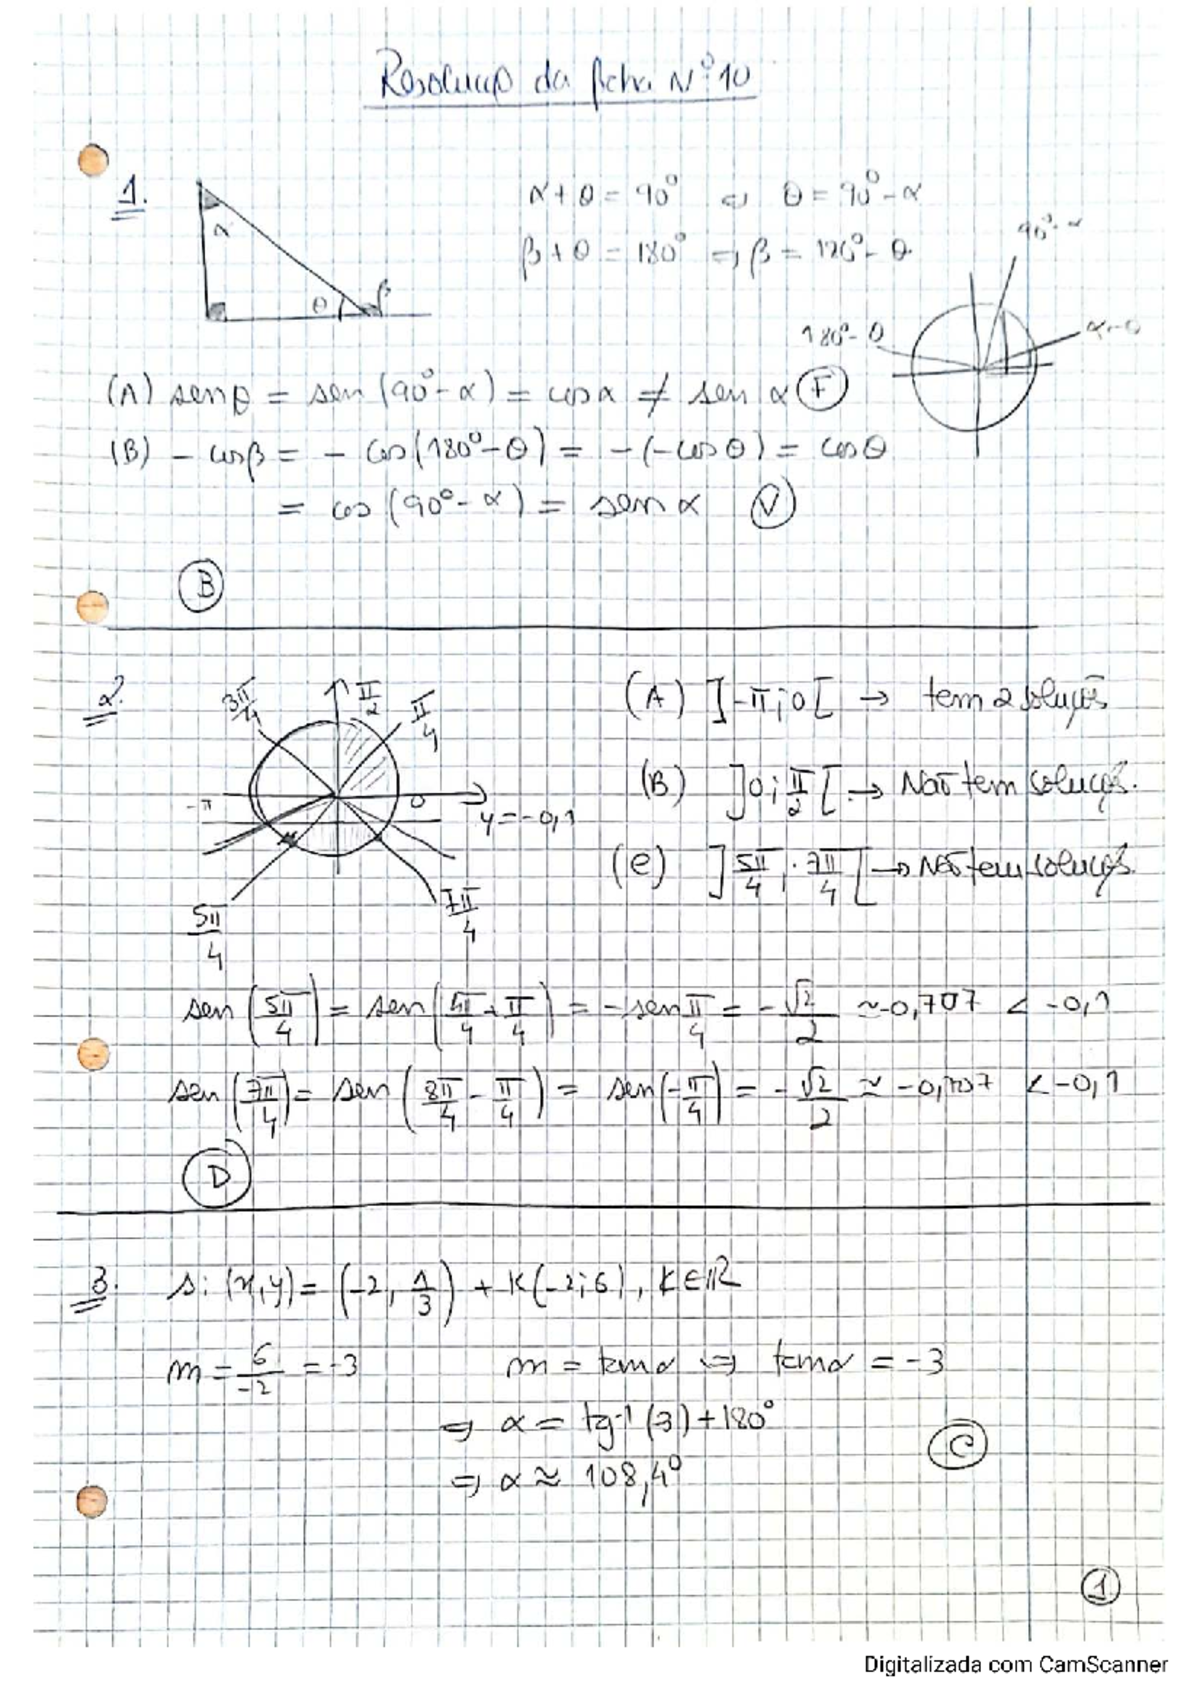 Resolução da ficha Nº 10
1.
α
θ
β
α + θ = 90° ⇔ θ = 90° - α
β + θ = 180° ⇒ β = 180° - θ
90° - α
180° - θ
α - θ
(A) sen θ = sen (90° - α) = cos α ≠ sen α (F)
(B) - cos β = - cos (180° - θ) = - (- cos θ) = cos θ
= cos (90° - α) = sen α (V)
(B)
2.
3π/4
π/2
π/4
-π
0
y = -0,1
5π/4
7π/4
(A) ]-π; 0[ → tem 2 soluções
(B) ]0; π/2[ → Não tem soluções.
(C) ]5π/4; 7π/4[ → Não tem soluções.
sen (5π/4) = sen (4π/4 + π/4) = - sen π/4 = - √2/2 ≈ -0,707 < -0,1
sen (7π/4) = sen (8π/4 - π/4) = sen (-π/4) = - √2/2 ≈ -0,707 < -0,1
(D)
3. s: (x,y) = (-2, 1/3) + K(-2; 6), K ∈ ℝ
m = 6/-2 = -3 m = tan α ⇒ tan α = -3
⇒ α = tg⁻¹ (3) + 180°
(C)
⇒ α ≈ 108,4°
1
Digitalizada com CamScanner